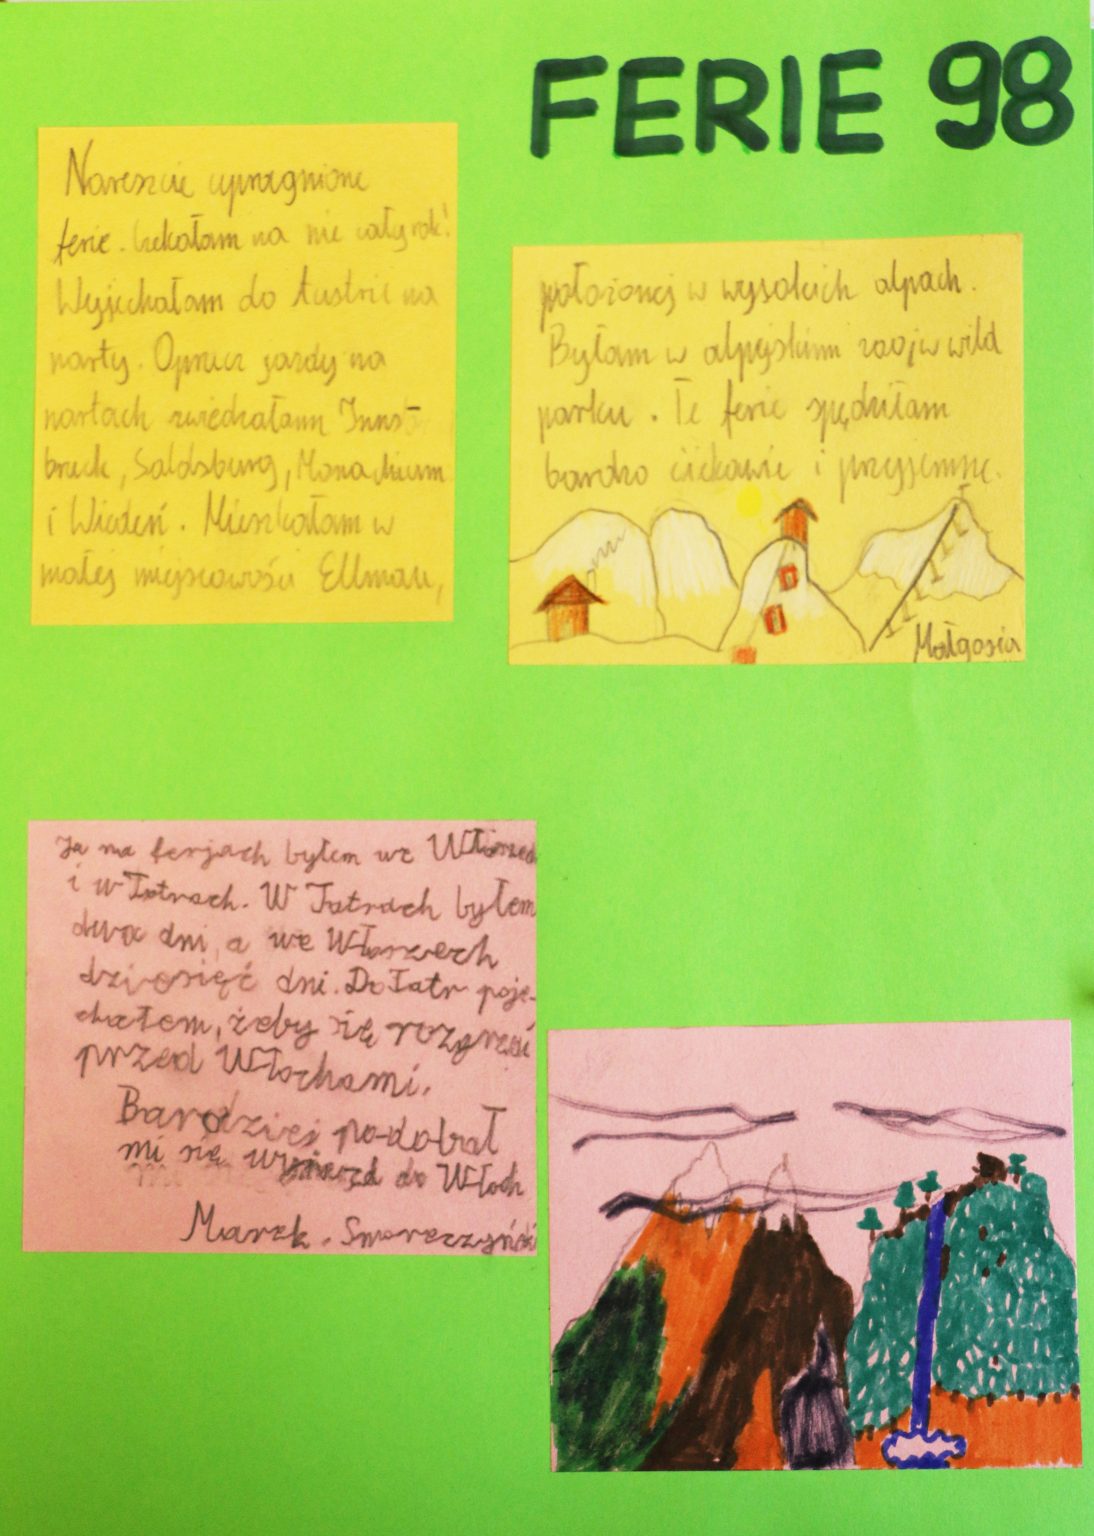 FERIE 98
Nareszcie upragnione
ferie. Czekałam na nie cały rok!
Wyjechałam do Austrii na
narty. Oprucz jazdy na
nartach zwiedzałam Inns-
bruck, Saldsburg, Monachium
i Wiedeń. Mieszkałam w
małej miejscowości Ellmau,
położonej w wysokich alpach.
Byłam w alpejskim zoo i w wild
parku. Te ferie spędziłam
bardzo ciekawie i przyjemnie.
Małgosia
Ja na ferjach byłem we Włoszech
i w Tatrach. W Tatrach byłem
dwa dni, a we Włoszech
dziesięć dni. Do Tatr poje-
chałem, żeby się rozgrzać
przed Włochami.
Bardziej podobał
mi się wyjazd do Włoch
Marek